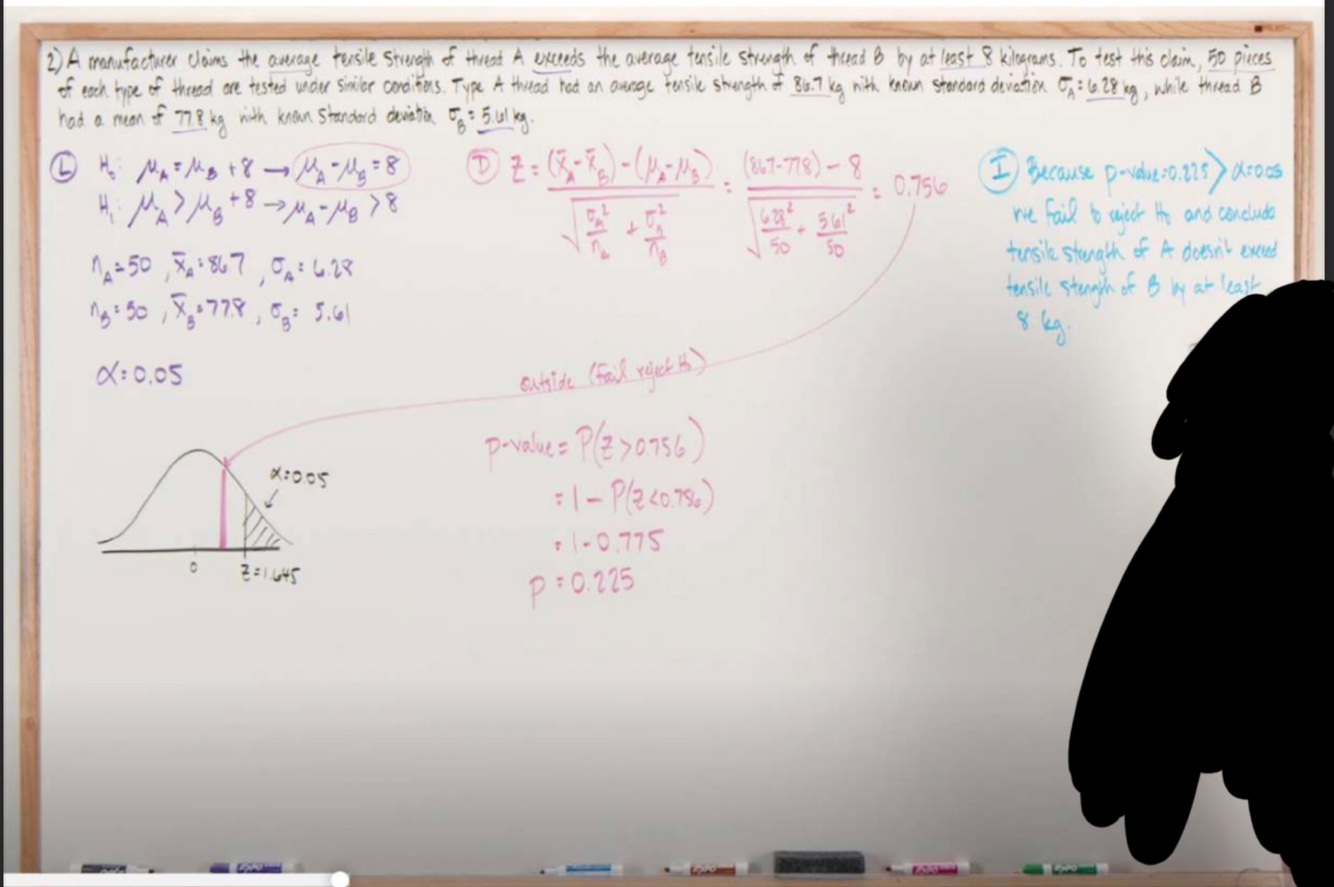 2) A manufacturer claims the average tensile strength of thread A exceeds the average tensile strength of thread B by at least 8 kilograms. To test this claim, 50 pieces
of each type of thread are tested under similar conditions. Type A thread had an average tensile strength of 86.7 kg with known standard deviation σ_A = 6.28 kg, while thread B
had a mean of 77.8 kg with known standard deviation σ_B = 5.61 kg.
L H₀: μ_A = μ_B + 8 → μ_A - μ_B = 8
H₁: μ_A > μ_B + 8 → μ_A - μ_B > 8
n_A = 50, x̄_A = 86.7, σ_A = 6.28
n_B = 50, x̄_B = 77.8, σ_B = 5.61
α = 0.05
α = 0.05
0 Z = 1.645
D Z = ((x̄_A - x̄_B) - (μ_A - μ_B)) / √(σ_A²/n_A + σ_B²/n_B) = ((86.7 - 77.8) - 8) / √(6.28²/50 + 5.61²/50) = 0.756
outside (fail reject H₀)
p-value = P(Z > 0.756)
= 1 - P(Z < 0.756)
= 1 - 0.775
p = 0.225
I Because p-value = 0.225 > α = 0.05
we fail to reject H₀ and conclude
tensile strength of A doesn't exceed
tensile stength of B by at least
8 kg.